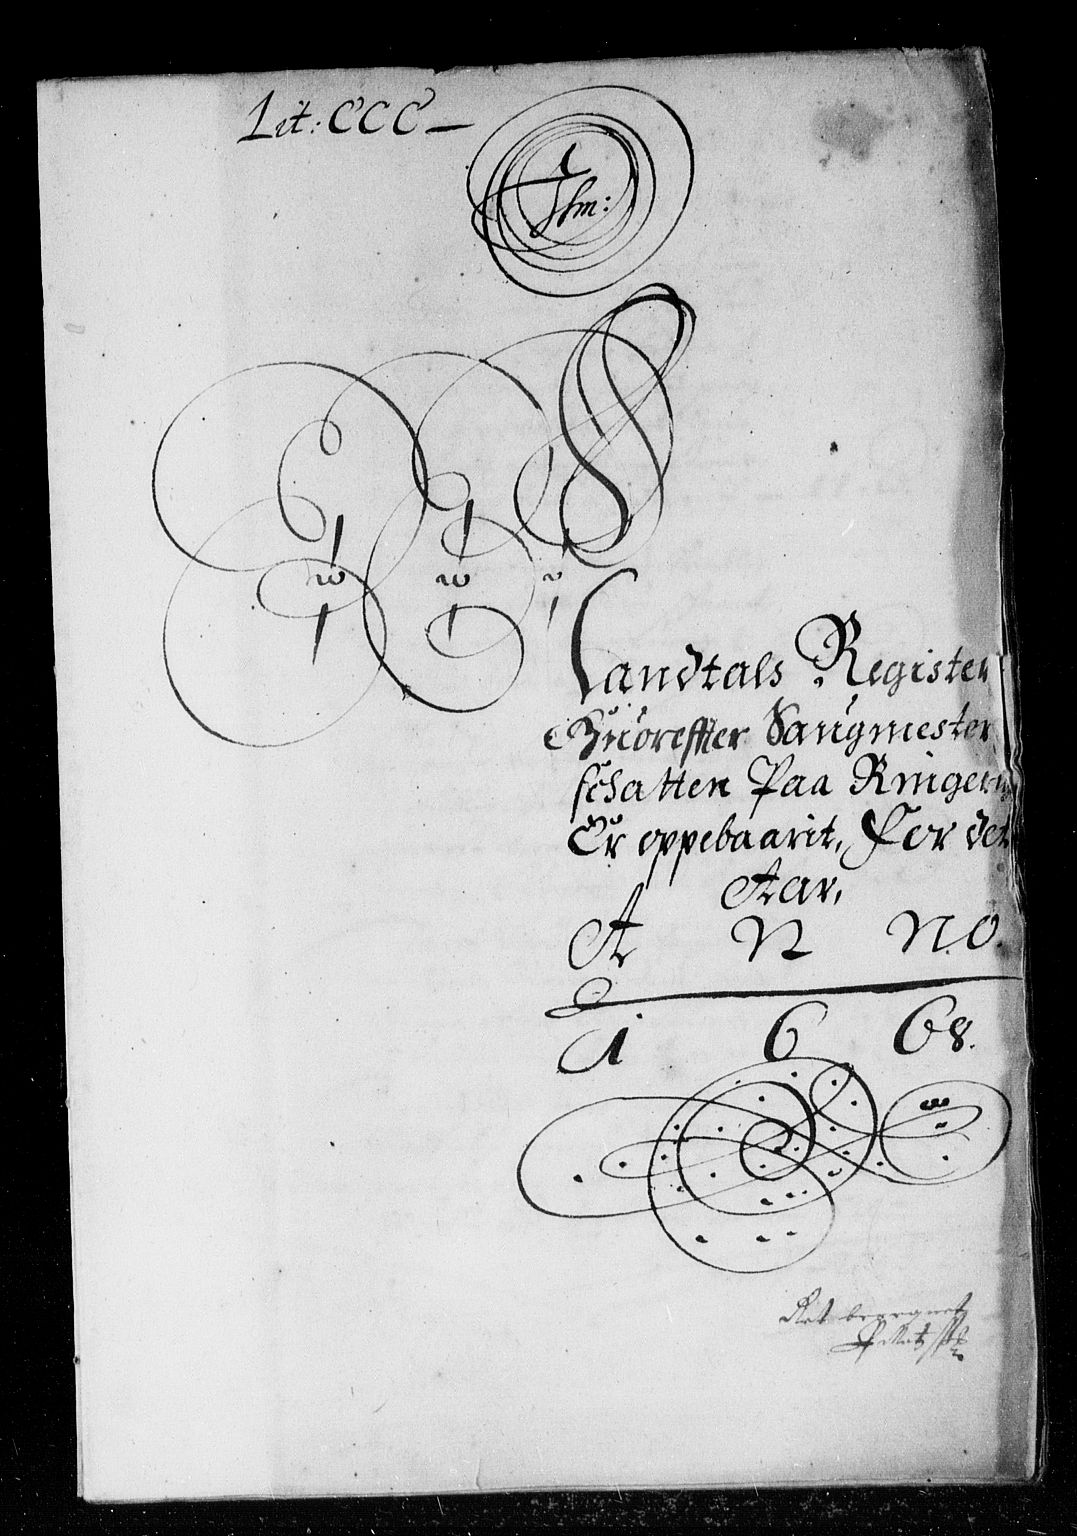 Lit: CCC
Jhm:
Landtals Register
Huoreffter Saugmester
schatten Paa Ringerig
Er oppebaarit, For det
Aar,
A N N O.
1 6 68.
Ret beregnet